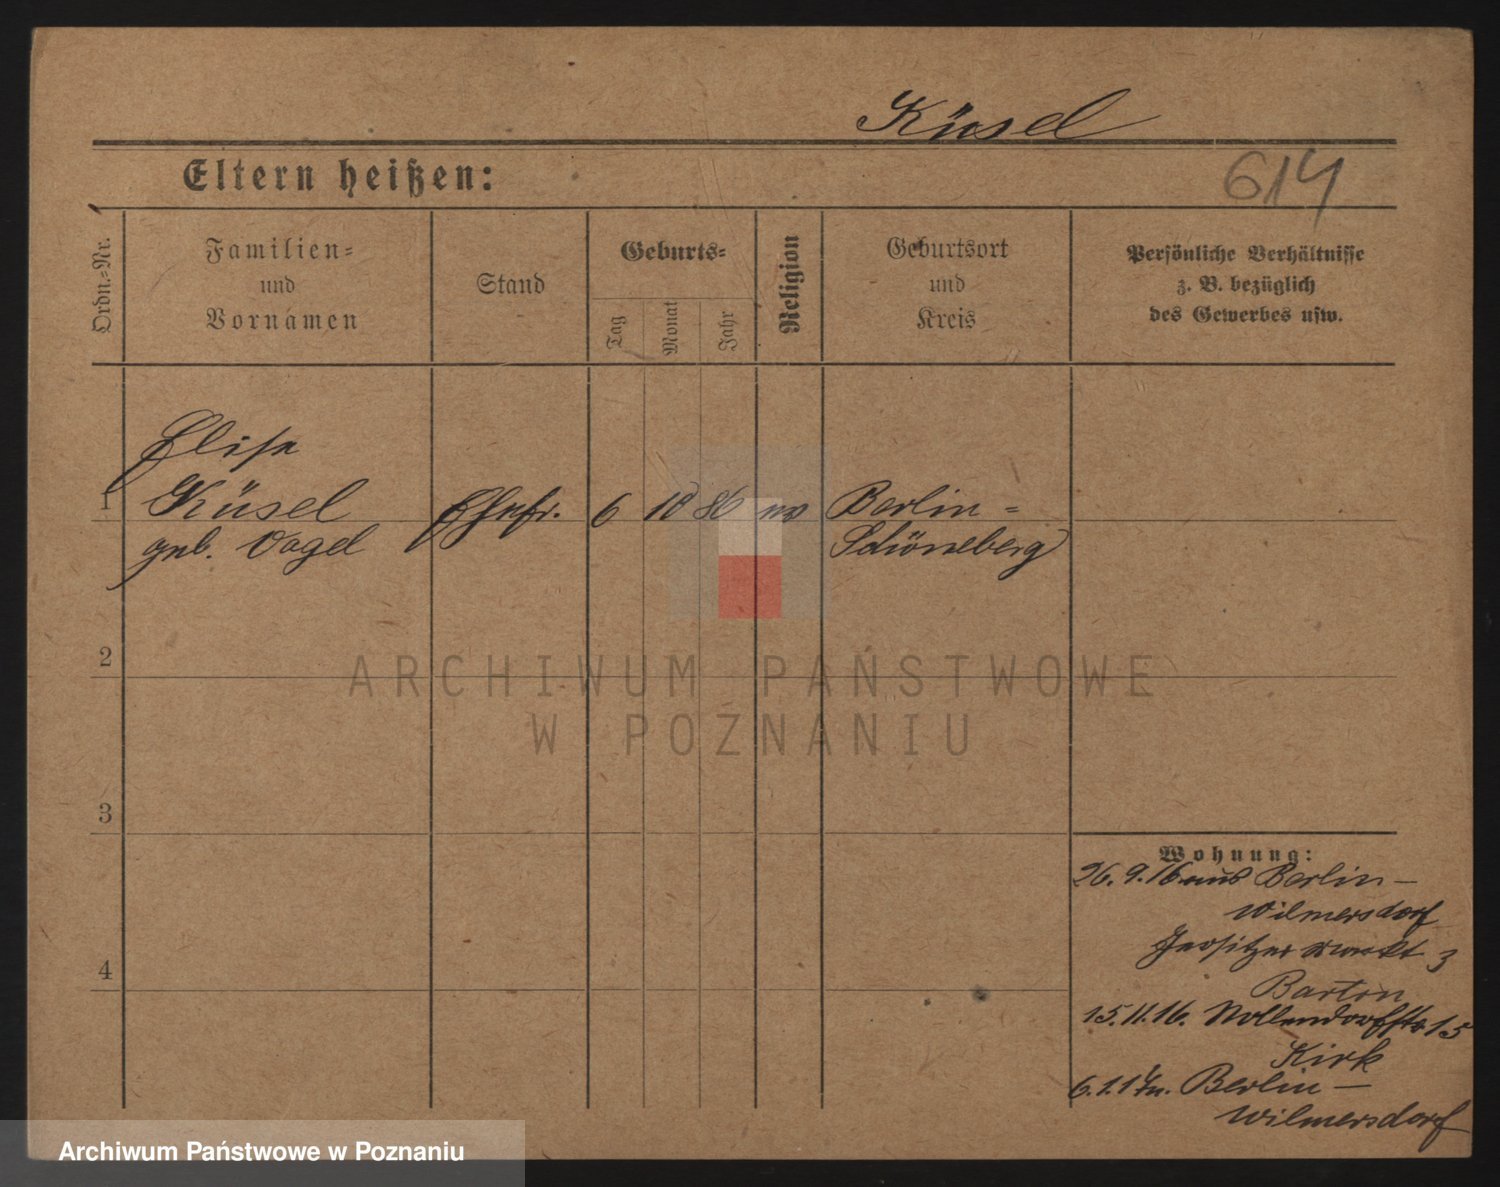 Küsel
Eltern heißen:
614
Ordn.-Nr.
Familien-
und
Vornamen
Stand
Geburts-
Tag
Monat
Jahr
Religion
Geburtsort
und
Kreis
Persönliche Verhältnisse
z. B. bezüglich
des Gewerbes usw.
Elise
1 Küsel Ehefr. 6 10 86 ev Berlin-
geb. Vogel Schöneberg
2
ARCHIWUM PAŃSTWOWE
W POZNANIU
3
Wohnung:
26. 9. 16 aus Berlin-
Wilmersdorf
Jersitzer Markt 3
4
Barton
15. 11. 16. Nollendorfstr 15
Kirk
6. 1. 17 n. Berlin-
Wilmersdorf
Archiwum Państwowe w Poznaniu